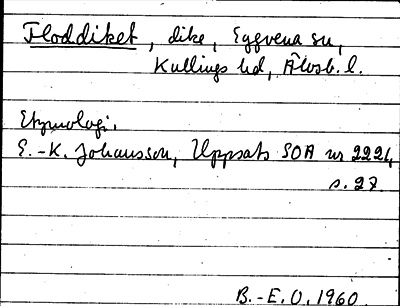 Floddiket, dike, Eggvena sn,
Kullings hd, Älvsb. l.
Etymologi.
E.-K. Johansson, Uppsats SOA nr 2224,
s. 27.
B.-E. O. 1960